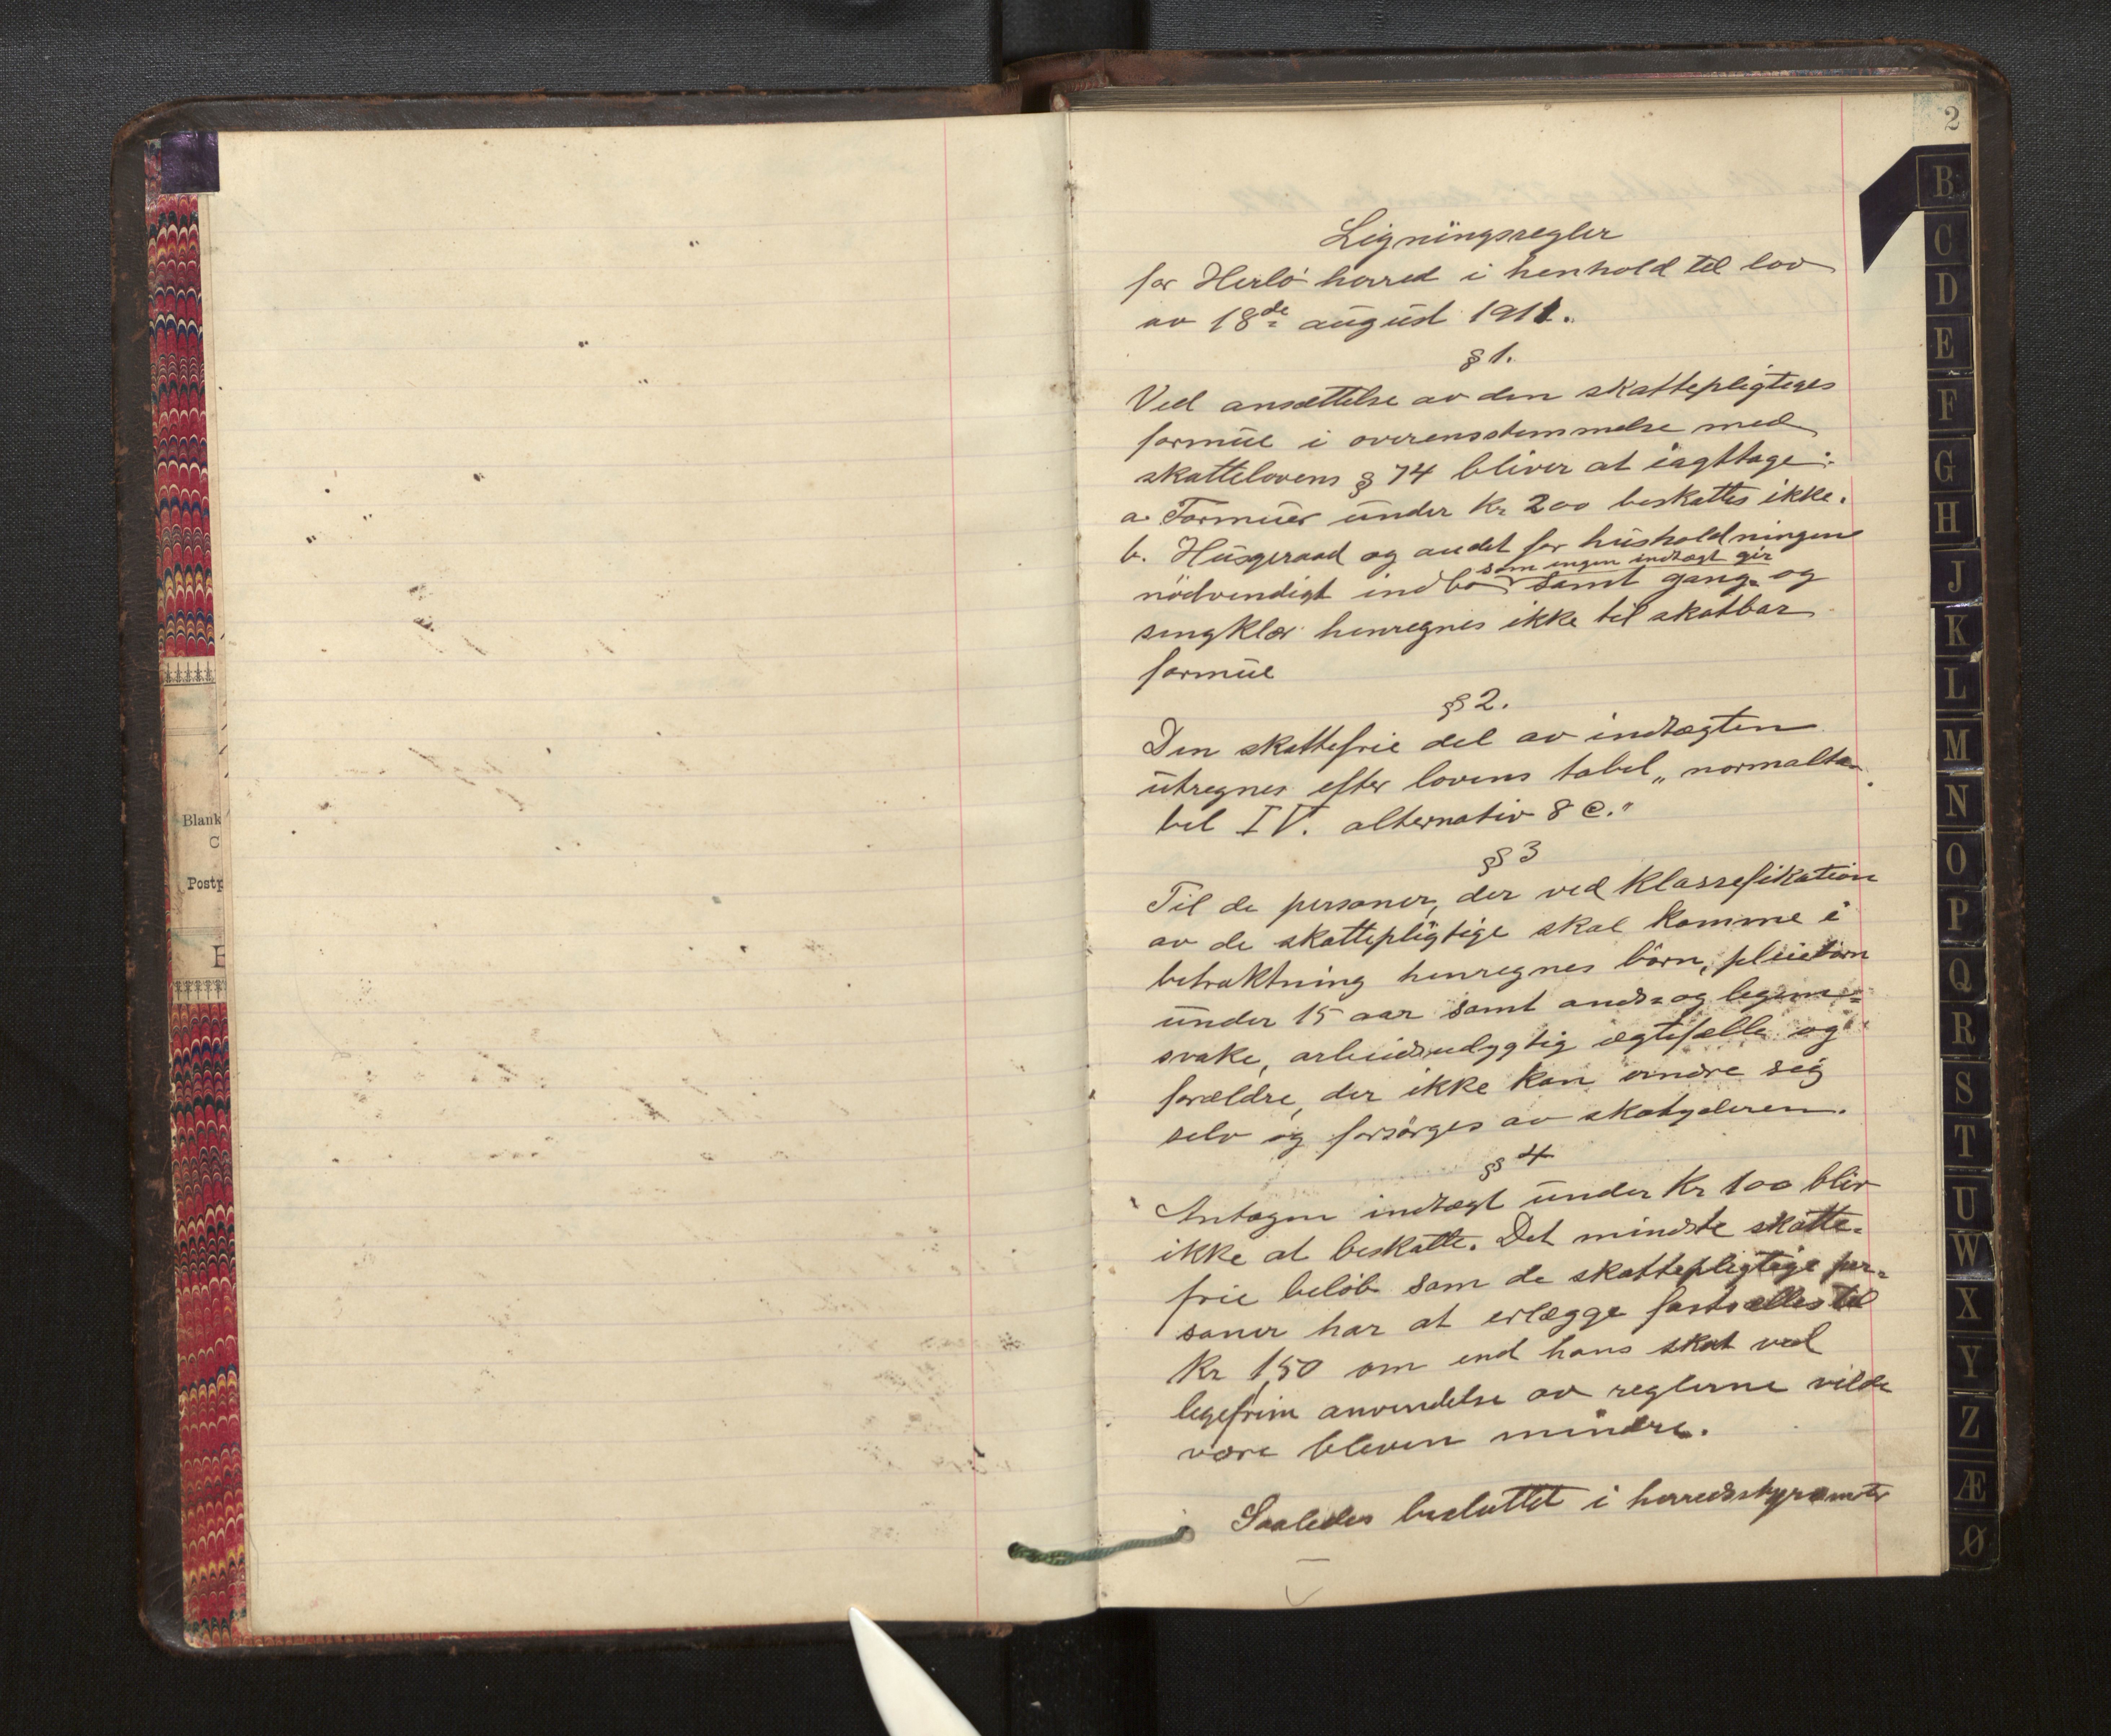 Blank
C
Postp
E
2
B
C
D
E
F
G
H
J
K
L
M
N
O
P
Q
R
S
T
U
W
X
Y
Z
Æ
Ø
Ligningsregler
for Herlö herred i henhold til lov
av 18de august 1911.
§ 1.
Ved ansættelse av den skattepligtiges
formue i overensstemmelse med
skattelovens § 74 bliver at iagttage:
a. Formuer under Kr 200 beskattes ikke.
b. Husgeraad og andet for husholdningen
som ingen indtægt gir
nödvendigt indbo samt gang- og
sengklær henregnes ikke til skatbar
formue
§ 2.
Den skattefrie del av indtægten
utregnes efter lovens tabel „normalta-
bel IV. alternativ 8 c."
§ 3
Til de personer, der ved klassefikation
av de skattepligtige skal komme i
betraktning henregnes börn, pleiebörn
under 15 aar samt ands- og legems-
svake, arbeidsudygtig ægtefælle og
forældre, der ikke kan ernære sig
selv og forsörges av skatyderen.
§ 4
Antagen indtægt under Kr 100 blir
ikke at beskatte. Det mindste skatte-
frie belöb som de skattepligtige per-
soner har at erlægge fastsættes til
Kr 1,50 om end hans skat ved
ligefrem anvendelse av reglerne vilde
være bleven mindre.
Saaledes besluttet i herredsstyremöter